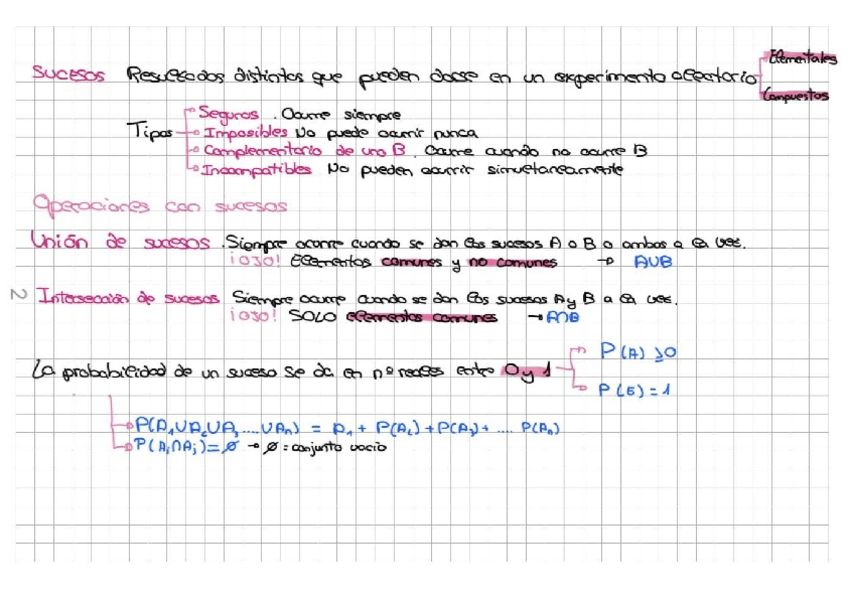 Sucesos Resultados distintos que pueden darse en un experimento aleatorio
Elementales
Compuestos
Tipos
Seguros. Ocurre siempre
Imposibles No puede ocurrir nunca
Complementario de uno B. Ocurre cuando no ocurre B
Incompatibles No pueden ocurrir simultaneamente
Operaciones con sucesos
Unión de sucesos. Siempre ocurre cuando se dan los sucesos A o B o ambos a la vez.
¡OJO! Elementos comunes y no comunes → AUB
Intersección de sucesos Siempre ocurre cuando se dan los sucesos A y B a la vez.
¡OJO! SOLO elementos comunes → A∩B
La probabilidad de un suceso se da en nº reales entre 0 y 1
P(A) ≥0
P(E)=1
P(A₁UA₂UA₃....UAₙ) = P₁ + P(A₂)+P(A₃)+ .... P(Aₙ)
P(Aᵢ∩Aⱼ)=∅ → ∅ = conjunto vacio